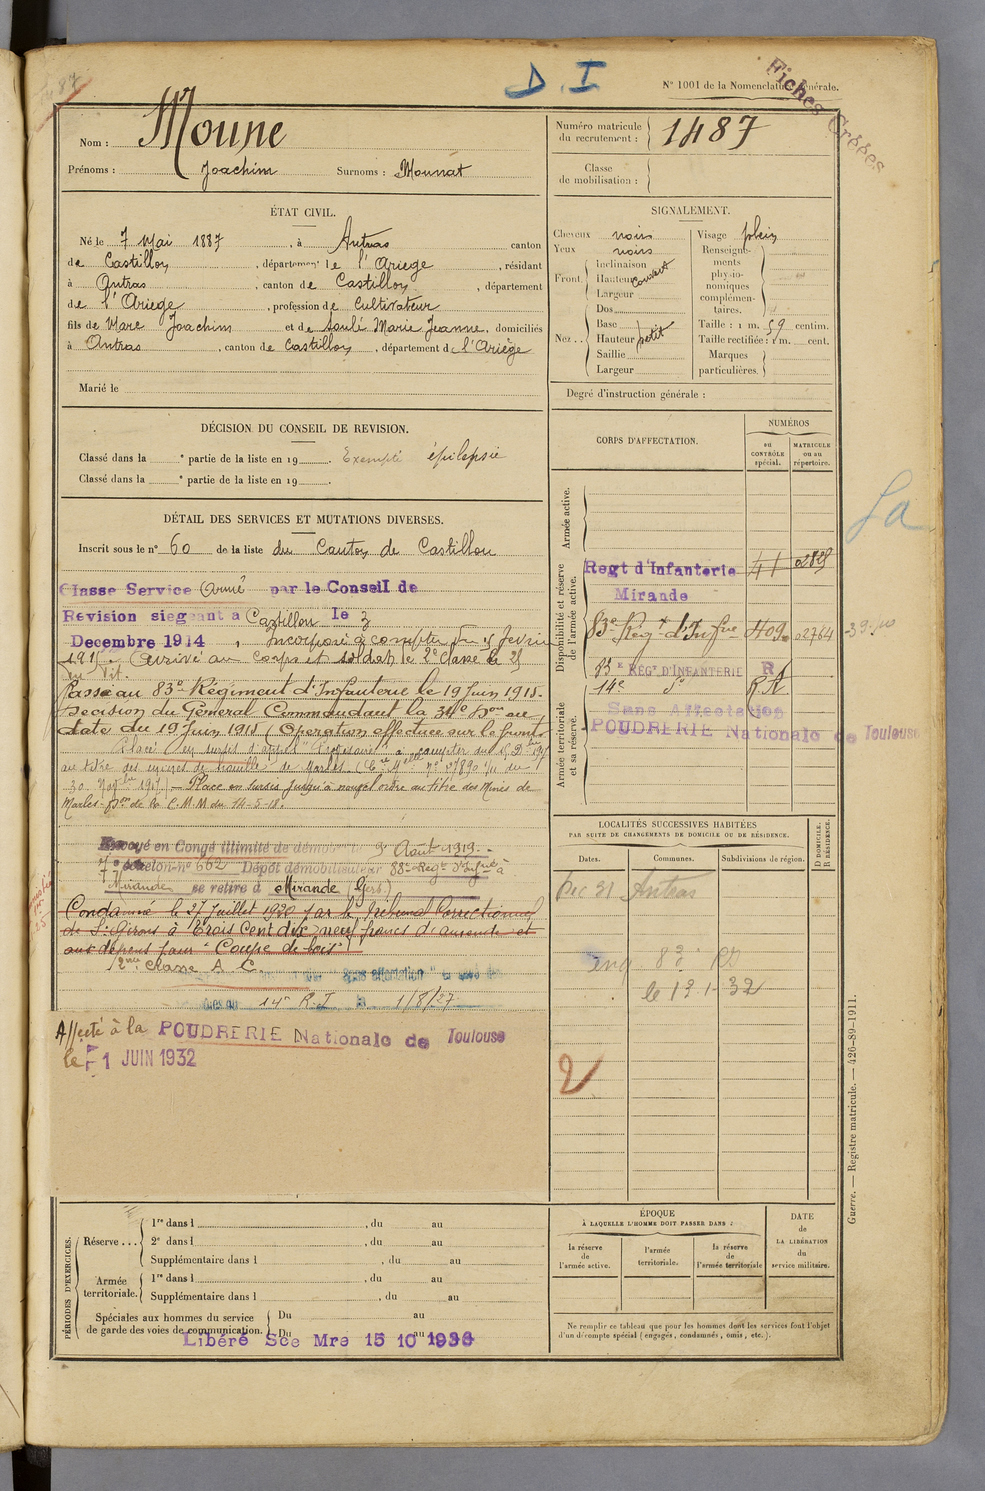 D. I
N° 1001 de la Nomenclature générale.
Fiches Créées
Nom : Moune
Prénoms : Joachim Surnoms : Mounat
Numéro matricule du recrutement : 1487
Classe de mobilisation :
ÉTAT CIVIL.
Né le 7 Mai 1887, à Antras canton
de Castillon, département de l'Ariège, résidant
à Antras, canton de Castillon, département
de l'Ariège, profession de Cultivateur
fils de Marc Joachim et de Soulé Marie Jeanne, domiciliés
à Antras, canton de Castillon, département de l'Ariège
Marié le
SIGNALEMENT.
Cheveux noirs
Yeux noirs
Front
Inclinaison
Hauteur couvert
Largeur
Nez
Dos
Base
Hauteur petit
Saillie
Largeur
Visage plein
Renseignements physionomiques complémentaires.
Taille : 1 m. 59 centim.
Taille rectifiée : 1 m. cent.
Marques particulières.
Degré d'instruction générale :
DÉCISION DU CONSEIL DE REVISION.
Classé dans la e partie de la liste en 19 . Exempté épilepsie
Classé dans la e partie de la liste en 19 .
DÉTAIL DES SERVICES ET MUTATIONS DIVERSES.
Inscrit sous le n° 60 de la liste du Canton de Castillon
Classe Service Armé par le Conseil de
Revision siegeant a Castillon le 3
Decembre 1914, Incorporé à compter du
1915. Arrivé au corps et soldat de 2e classe le
Passé au 83e Régiment d'Infanterie le 19 Juin 1915.
Décision du Général Commandant la 34e Don en
date du 19 Juin 1915 (Opération effectuée sur le front)
Placé en sursis d'appel
au titre des mines de houille de Marles
30 1917) — Placé en sursis jusqu'à nouvel ordre au titre des Mines de
Marles. Don de la C.M.M du 14-5-18.
Envoyé en Congé illimité de démob 9 Août 1919.
7e échelon n° 662 Dépôt démobilisateur 88e Regt d'Infie à
Mirande se retire à Mirande (Gers)
Condamné le 27 Juillet 1920 par le Tribunal Correctionnel
de St Girons à Trois Cent dix neuf francs d'amende et
aux dépens pour "Coupe de bois"
Classe A
"Sans affectation"
14e R.I le 1/8/27
Affecté à la POUDRERIE Nationale de Toulouse
le 1 JUIN 1932
CORPS D'AFFECTATION.
NUMÉROS
au CONTRÔLE spécial.
MATRICULE ou au répertoire.
Armée active.
Disponibilité et réserve de l'armée active.
Regt d'Infanterie
Mirande
83e Régt d'Infrie 409 02764
83e RÉGt D'INFANTERIE R
14e do
Armée territoriale et sa réserve.
Sans Affectation
POUDRERIE Nationale de Toulouse
LOCALITÉS SUCCESSIVES HABITÉES
PAR SUITE DE CHANGEMENTS DE DOMICILE OU DE RÉSIDENCE.
Dates. Communes. Subdivisions de région.
D DOMICILE. R RÉSIDENCE.
Dec 31 Antras
2
PÉRIODES D'EXERCICES.
Réserve...
1re dans l , du au
2e dans l , du au
Supplémentaire dans l , du au
Armée territoriale.
1re dans l , du au
Supplémentaire dans l , du au
Spéciales aux hommes du service de garde des voies de communication.
Du au
Du au
Libéré Sce Mre 15 10 1936
ÉPOQUE
À LAQUELLE L'HOMME DOIT PASSER DANS :
la réserve de l'armée active.
l'armée territoriale.
la réserve de l'armée territoriale
DATE de LA LIBÉRATION du service militaire.
Ne remplir ce tableau que pour les hommes dont les services font l'objet
d'un décompte spécial (engagés, condamnés, omis, etc.).
Guerre. — Registre matricule. — 426-89-1911.